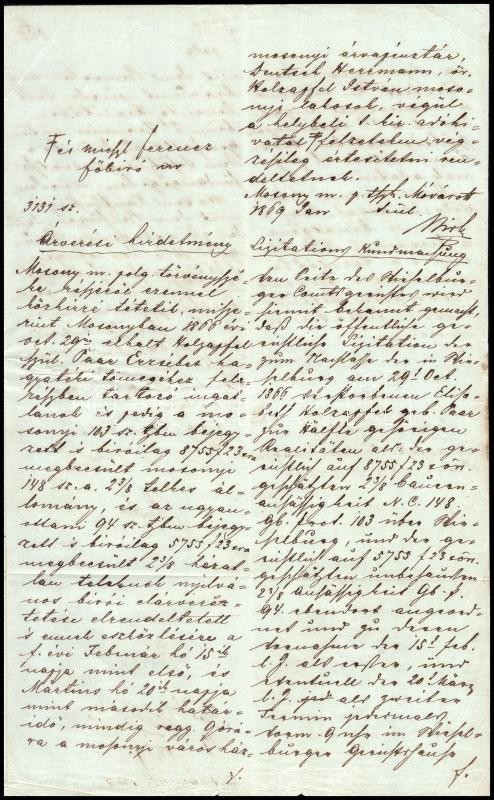 Fés michl ferencz
főbiró ur
3131 sz.
Árverési hirdetmény
Mosony m. polg. törvényszé-
ke részéről ezennel
közhirre tétetik, misze-
rint Mosonyban 1866 évi
oct. 29én elhalt Holzapfel
szül. Paar Erzsébet ha-
gyatéki tömegéhez fele-
részben tartozó ingat-
lanok és pedig a mo-
sonyi 103 sz. tjkvben bejegy-
zett is biróilag 8755 f 23 xra
megbecsült mosonyi
148 sz. a. 2 3/8 telkes ál-
lomány, és az ugyan-
ottani 94 sz. tjkvben bejegy-
zett is biróilag 5753 f 23 xra
megbecsült 2 3/8 házat-
lan teleknek nyilvá-
nos birói elárverez-
tetése elrendeltetett
s ennek eszközlésére a
f. évi Február hó 15ik
napja mint első, és
Mártius hó 20ik napja
mint második határ-
idő, mindig regg. 9 órá-
ra a mosonyi városház-
mosonyi árvapénztár,
Deutsch Herrmann, és
Holzapfel István moso-
nyi lakosok, végül
a helybeli k. kir. adóhi-
vatal feltételes vég-
zésileg értesitetni ren-
deltetnek.
Mosony m. p. tszk. Móvárott
1869 Jan
Licitations Kundmachung
Von Seite des Wieselbur-
ger Comitsgerichtes wird
hiemit bekannt gemacht,
daß die öffentliche ge-
richtliche Lizitation der
zum Nachlasse der in Wie-
selburg am 29t Oct.
1866 verstorbenen Elisa-
beth Holzapfel geb. Paar
zur Hälfte gehörigen
Realitäten als: der ge-
richtlich auf 8755 f 23 xr.
geschätzten 2 3/8 Bauern-
ansässigkeit N.C. 148
Gb. Prot. 103 über Wie-
selburg, und der ge-
richtlich auf 5753 f 23 xr.
geschätzten unbehausten
2 3/8 Ansässigkeit Gb. P.
94 ebendort angeord-
net und zu deren
Vornahme der 15t Feb.
l. J. als erster, und
eventuell der 20t März
l. J. als zweiter
Termin jedesmals
Vorm. 9 Uhr im Wiesel-
burger Gerichtshause